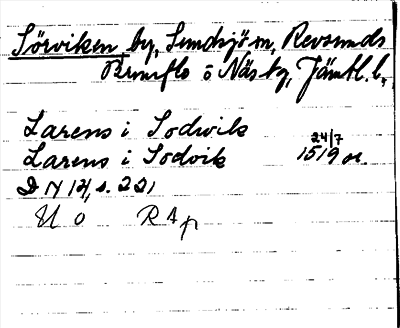 Sörviken by, Sundsjö sn, Revsunds
Brunflo o Näs tg, Jämtl. l.,
Larens i Sodwik
Larens i Sodvik 24/7 1519 or.
D N 12, s. 221
U o RAp